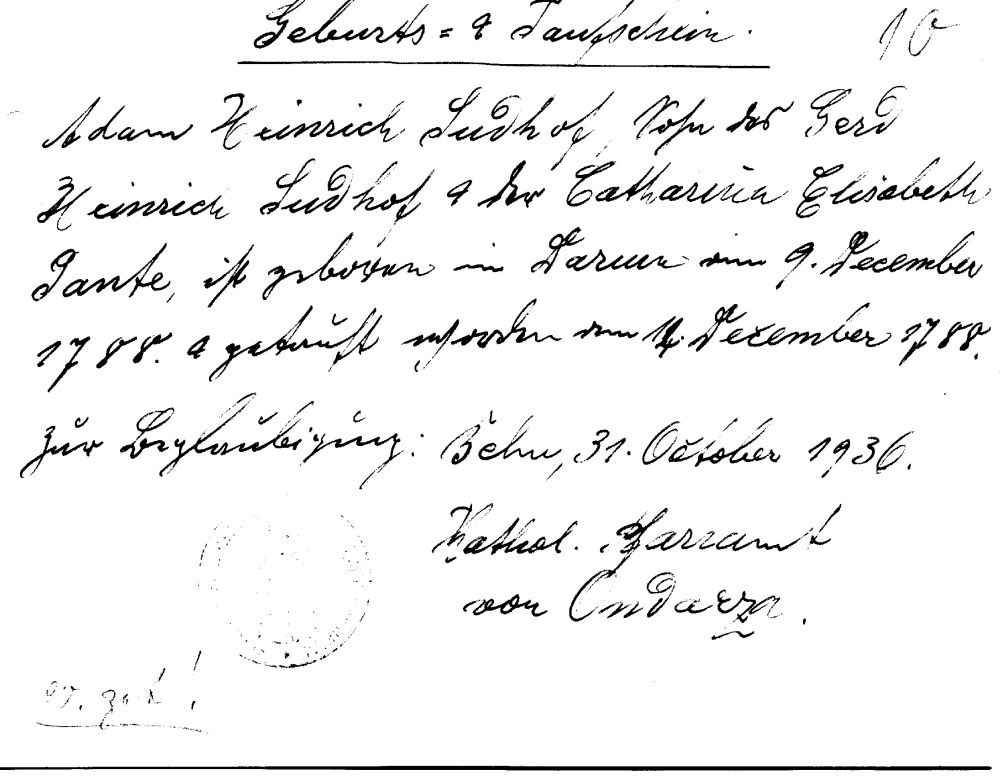 Geburts= & Taufschein.
10
Adam Heinrich Sudhof, Sohn des Gerd
Heinrich Sudhof & der Catharina Elisabeth
Tante, ist geboren in Darum am 9. December
1788. & getauft worden am 14. Dezember 1788.
Zur Beglaubigung: Belm, 31. October 1936.
Kathol. Pfarramt
von Ondarza.
ev. get.!